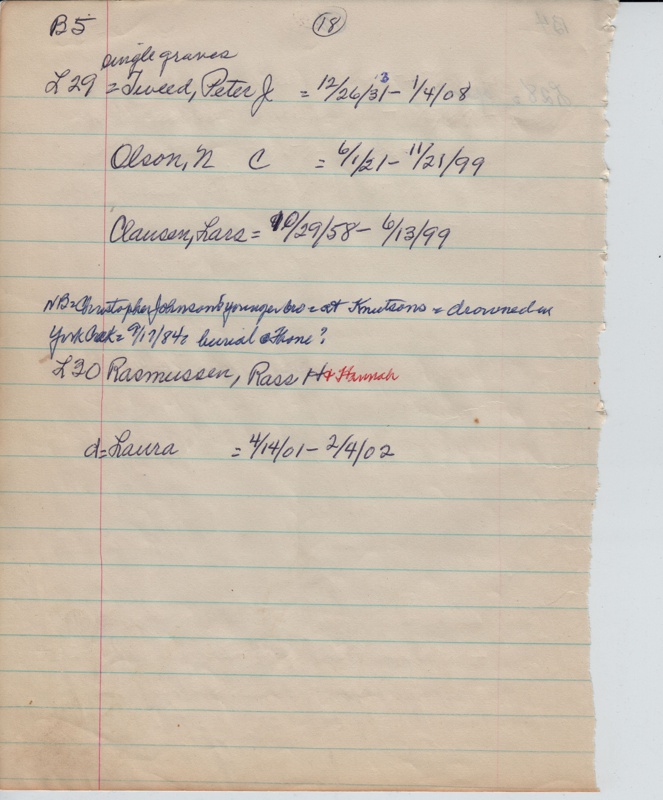 B5 18
single graves
L29 = Tweed, Peter J = 12/26/31- 1/4/08
3
Olson, N C = 6/1/21- 11/21/99
Clausen, Lars = 10/29/58- 6/13/99
NB = Christopher Johnson's younger bro = at Knutsons = drowned in
York Creek = 9/17/84 = burial @ home?
L30 Rasmussen, Rass H & Hannah
d = Laura = 4/14/01- 2/4/02